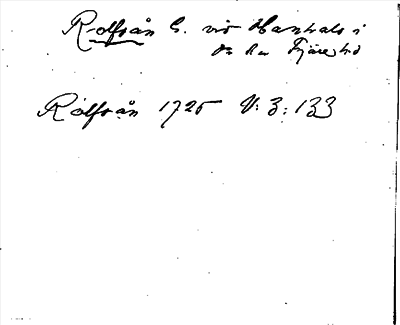 Rolfsån G. vid Hanhals i
Fjäre hd
Rolfsån 1725 V: 3: 133